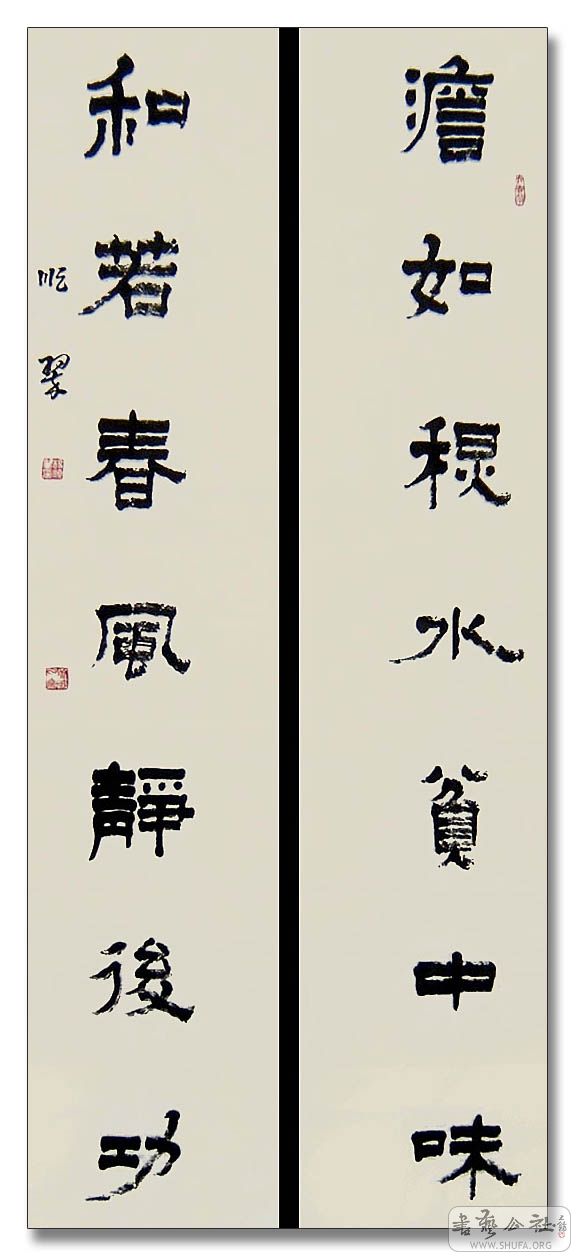 澹如秋水貧中味
和若春風靜後功
順翠
書藝公社
WWW.SHUFA.ORG